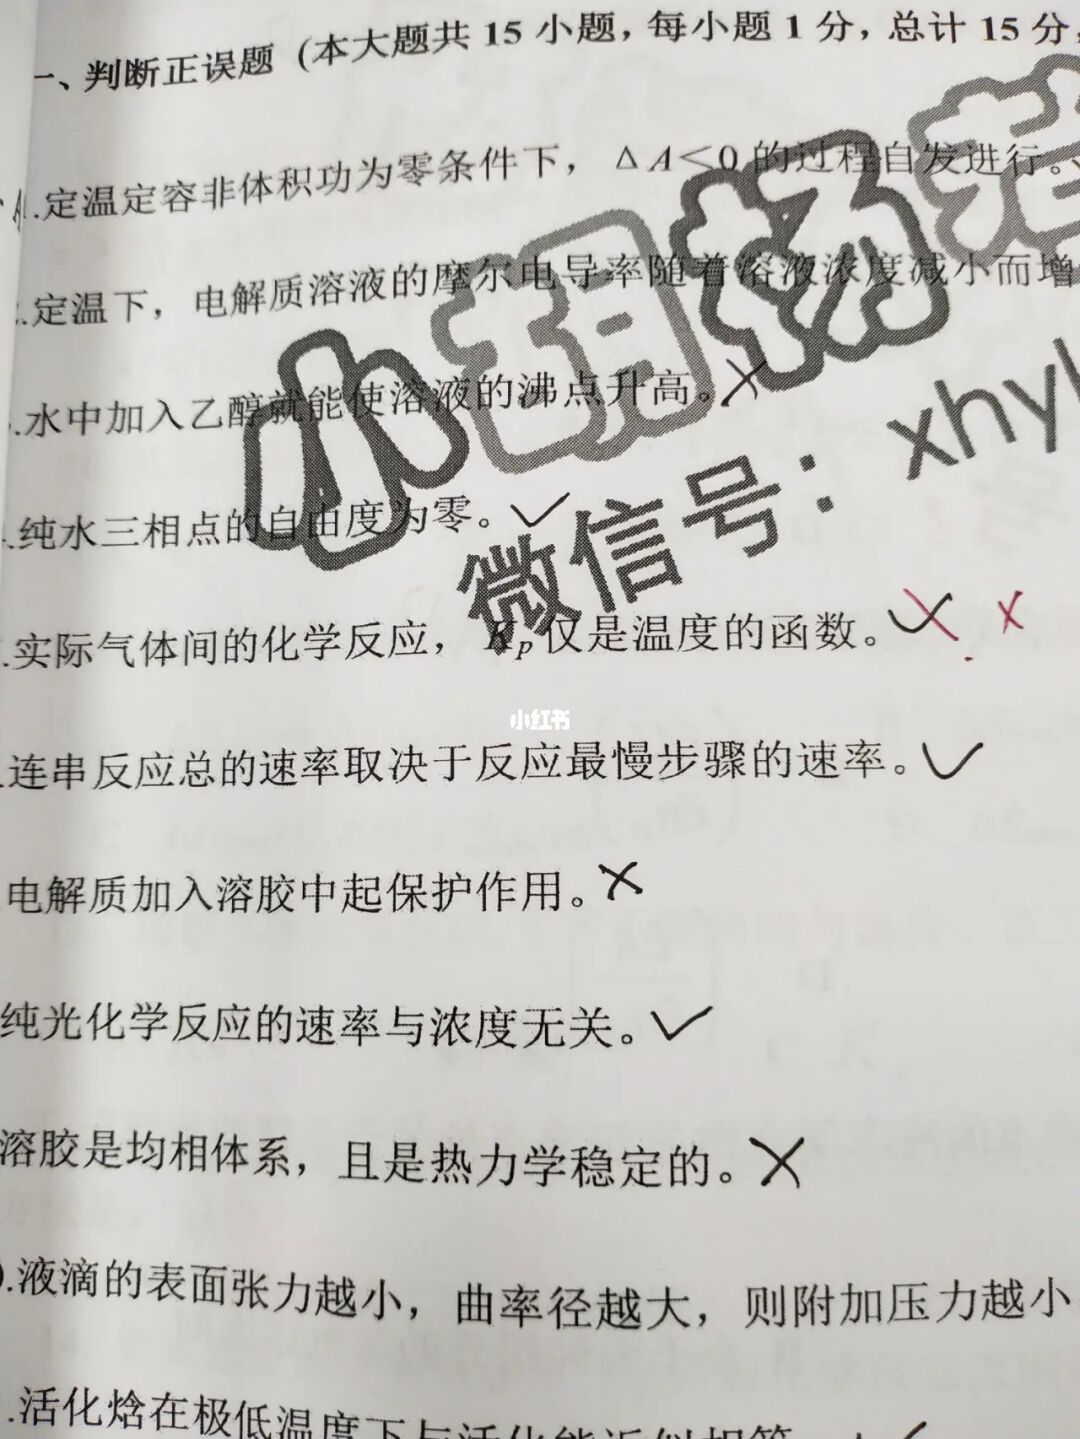 一、判断正误题（本大题共 15 小题，每小题 1 分，总计 15 分，
.定温定容非体积功为零条件下，ΔA<0 的过程自发进行。
.定温下，电解质溶液的摩尔电导率随着溶液浓度减小而增
.水中加入乙醇就能使溶液的沸点升高。×
.纯水三相点的自由度为零。✓
.实际气体间的化学反应，Kp 仅是温度的函数。✓ ×
小红书
.连串反应总的速率取决于反应最慢步骤的速率。✓
电解质加入溶胶中起保护作用。×
纯光化学反应的速率与浓度无关。✓
溶胶是均相体系，且是热力学稳定的。×
.液滴的表面张力越小，曲率径越大，则附加压力越小
.活化焓在极低温度下与活化能近似相等
微信号：xhyl